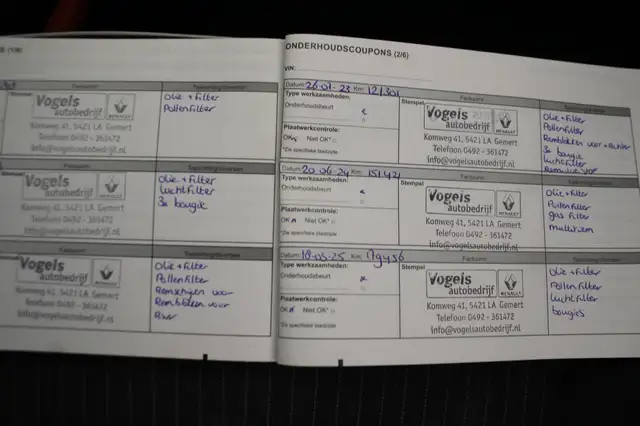 Factuurnr.
Stempel
Vogels
autobedrijf
RENAULT
Komweg 41, 5421 LA Gemert
Telefoon 0492 - 361472
info@vogelsautobedrijf.nl
Olie + Filter
Pollenfilter
Factuurnr.
Stempel
Vogels
autobedrijf
RENAULT
Komweg 41, 5421 LA Gemert
Telefoon 0492 - 361472
info@vogelsautobedrijf.nl
Olie + Filter
Luchtfilter
3x bougie
Factuurnr.
Stempel
Vogels
autobedrijf
RENAULT
Komweg 41, 5421 LA Gemert
Telefoon 0492 - 361472
info@vogelsautobedrijf.nl
Olie + Filter
Pollenfilter
Remschijven voor
Remblokken voor
ONDERHOUDSCOUPONS (2/6)
VIN:
Datum: 26-01-23 Km: 121301
Type werkzaamheden:
Onderhoudsbeurt
Plaatwerkcontrole:
OK Niet OK*
*Zie specifieke bladzijde
Factuurnr.
Stempel
Vogels
autobedrijf
RENAULT
Komweg 41, 5421 LA Gemert
Telefoon 0492 - 361472
info@vogelsautobedrijf.nl
Olie + Filter
Pollenfilter
Remblokken voor + achter
3x bougie
Luchtfilter
Datum: 20-06-24 Km:
Type werkzaamheden:
Onderhoudsbeurt
Plaatwerkcontrole:
OK Niet OK*
*Zie specifieke bladzijde
Factuurnr.
Stempel
Vogels
autobedrijf
RENAULT
Komweg 41, 5421 LA Gemert
Telefoon 0492 - 361472
info@vogelsautobedrijf.nl
Olie + Filter
Pollenfilter
gas filter
multiriem
Datum: Km:
Type werkzaamheden:
Onderhoudsbeurt
Plaatwerkcontrole:
OK Niet OK*
*Zie specifieke bladzijde
Factuurnr.
Stempel
Vogels
autobedrijf
RENAULT
Komweg 41, 5421 LA Gemert
Telefoon 0492 - 361472
info@vogelsautobedrijf.nl
Olie + Filter
Pollenfilter
Luchtfilter
bougies